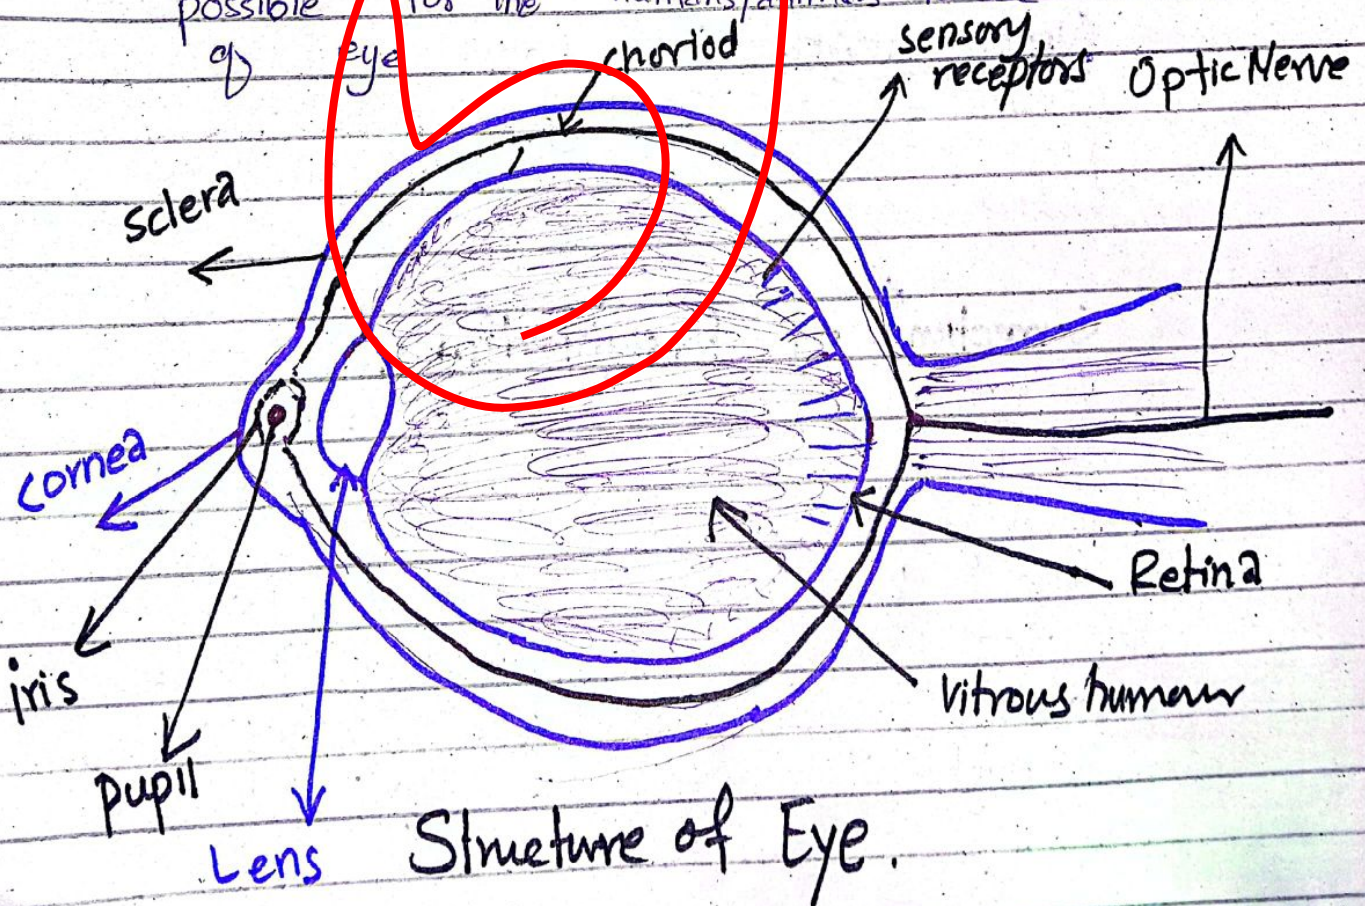 possible for the humans/animals
of eye
choriod
sensory
receptors
Optic Nerve
sclera
cornea
Retina
iris
Vitrous humour
pupil
Lens
Structure of Eye.